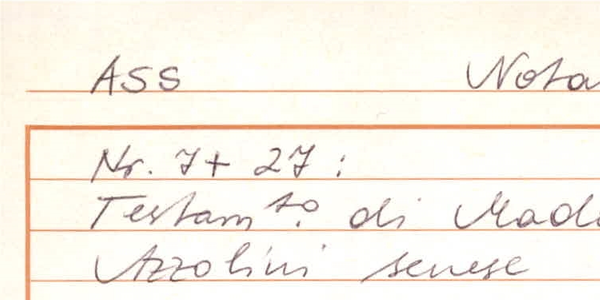 ASS Nota
Nr. 7+ 27 :
Testamto di Mado
Azzolini senese